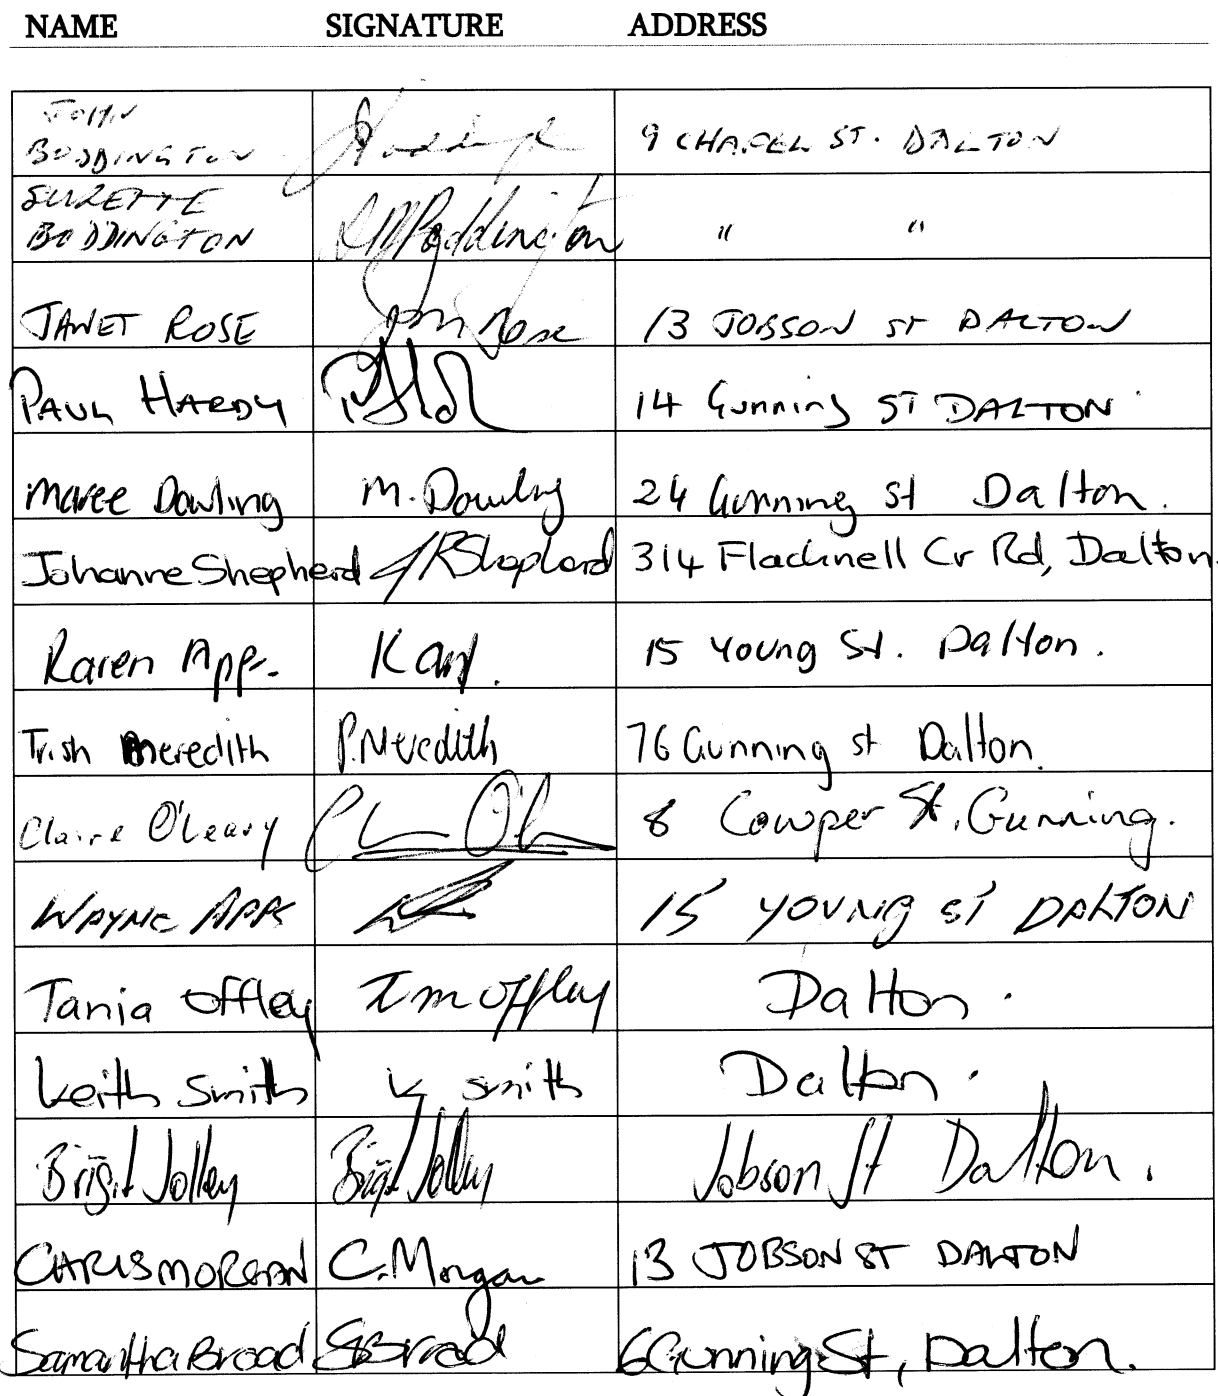 NAME SIGNATURE ADDRESS
JOHN
BODDINGTON 9 CHAPEL ST. DALTON
SUZETTE
BODDINGTON SMBoddington " "
JANET ROSE JM Rose 13 JOBSON ST DALTON
PAUL HARDY 14 Gunning ST DALTON
Maree Dowling M. Dowling 24 Gunning St Dalton.
Johanne Shepherd JRShepherd 314 Flacknell Cr Rd, Dalton.
Karen Apps. 15 Young St. Dalton.
Trish Meredith P.Meredith 76 Gunning st Dalton.
Claire O'Leary 8 Cowper St, Gunning.
WAYNE APPS 15 YOUNG ST DALTON
Tania Offley TM Offley Dalton.
Keith Smith K Smith Dalton.
Brigit Jolley Brigit Jolley Jobson St Dalton.
CHRIS MORGAN C. Morgan 13 JOBSON ST DALTON
Samantha Broad SBroad 6 Gunning St, Dalton.